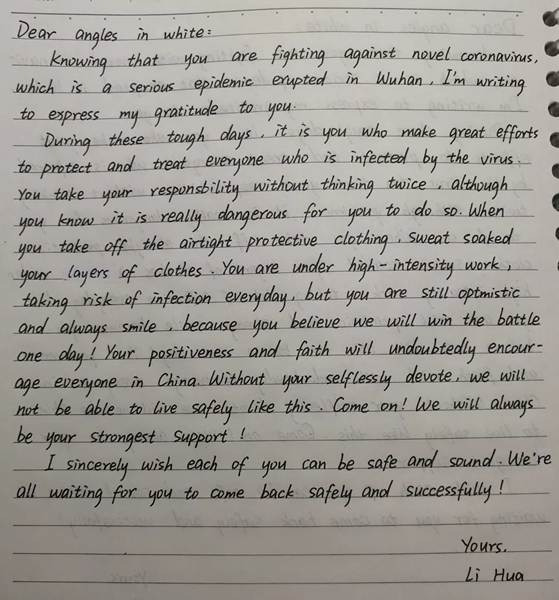 Dear angles in white:
Knowing that you are fighting against novel coronavirus,
which is a serious epidemic erupted in Wuhan, I'm writing
to express my gratitude to you.
During these tough days, it is you who make great efforts
to protect and treat everyone who is infected by the virus.
You take your responsbility without thinking twice, although
you know it is really dangerous for you to do so. When
you take off the airtight protective clothing, sweat soaked
your layers of clothes. You are under high-intensity work,
taking risk of infection everyday, but you are still optmistic
and always smile, because you believe we will win the battle
one day! Your positiveness and faith will undoubtedly encour-
age everyone in China. Without your selflessly devote, we will
not be able to live safely like this. Come on! We will always
be your strongest support!
I sincerely wish each of you can be safe and sound. We're
all waiting for you to come back safely and successfully!
Yours.
Li Hua